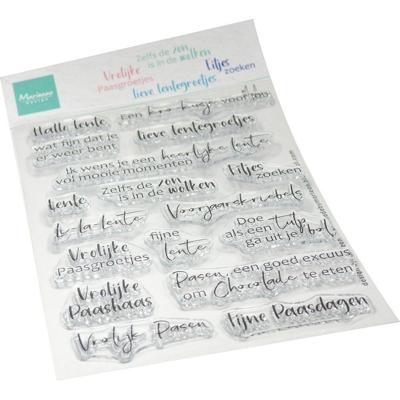 Marianne
DESIGN
Zelfs de zon
is in de wolken
Vrolijke
Paasgroetjes
Eitjes
zoeken
lieve lentegroetjes
Hallo lente
wat fijn dat je
er weer bent
Een voor jou
lieve lentegroetjes
Ik wens je een heerlijke lente
vol mooie momenten
Eitjes
zoeken
Zelfs de zon
is in de wolken
lente
Voorjaarskriebels
la-la-lente
fijne
lente
Doe
als een tulp
ga uit je bol!
Vrolijke
Paasgroetjes
Pasen, een goed excuus
om Chocolade te eten
Vrolijke
Paashaas
Vrolijk Pasen
Fijne Paasdagen